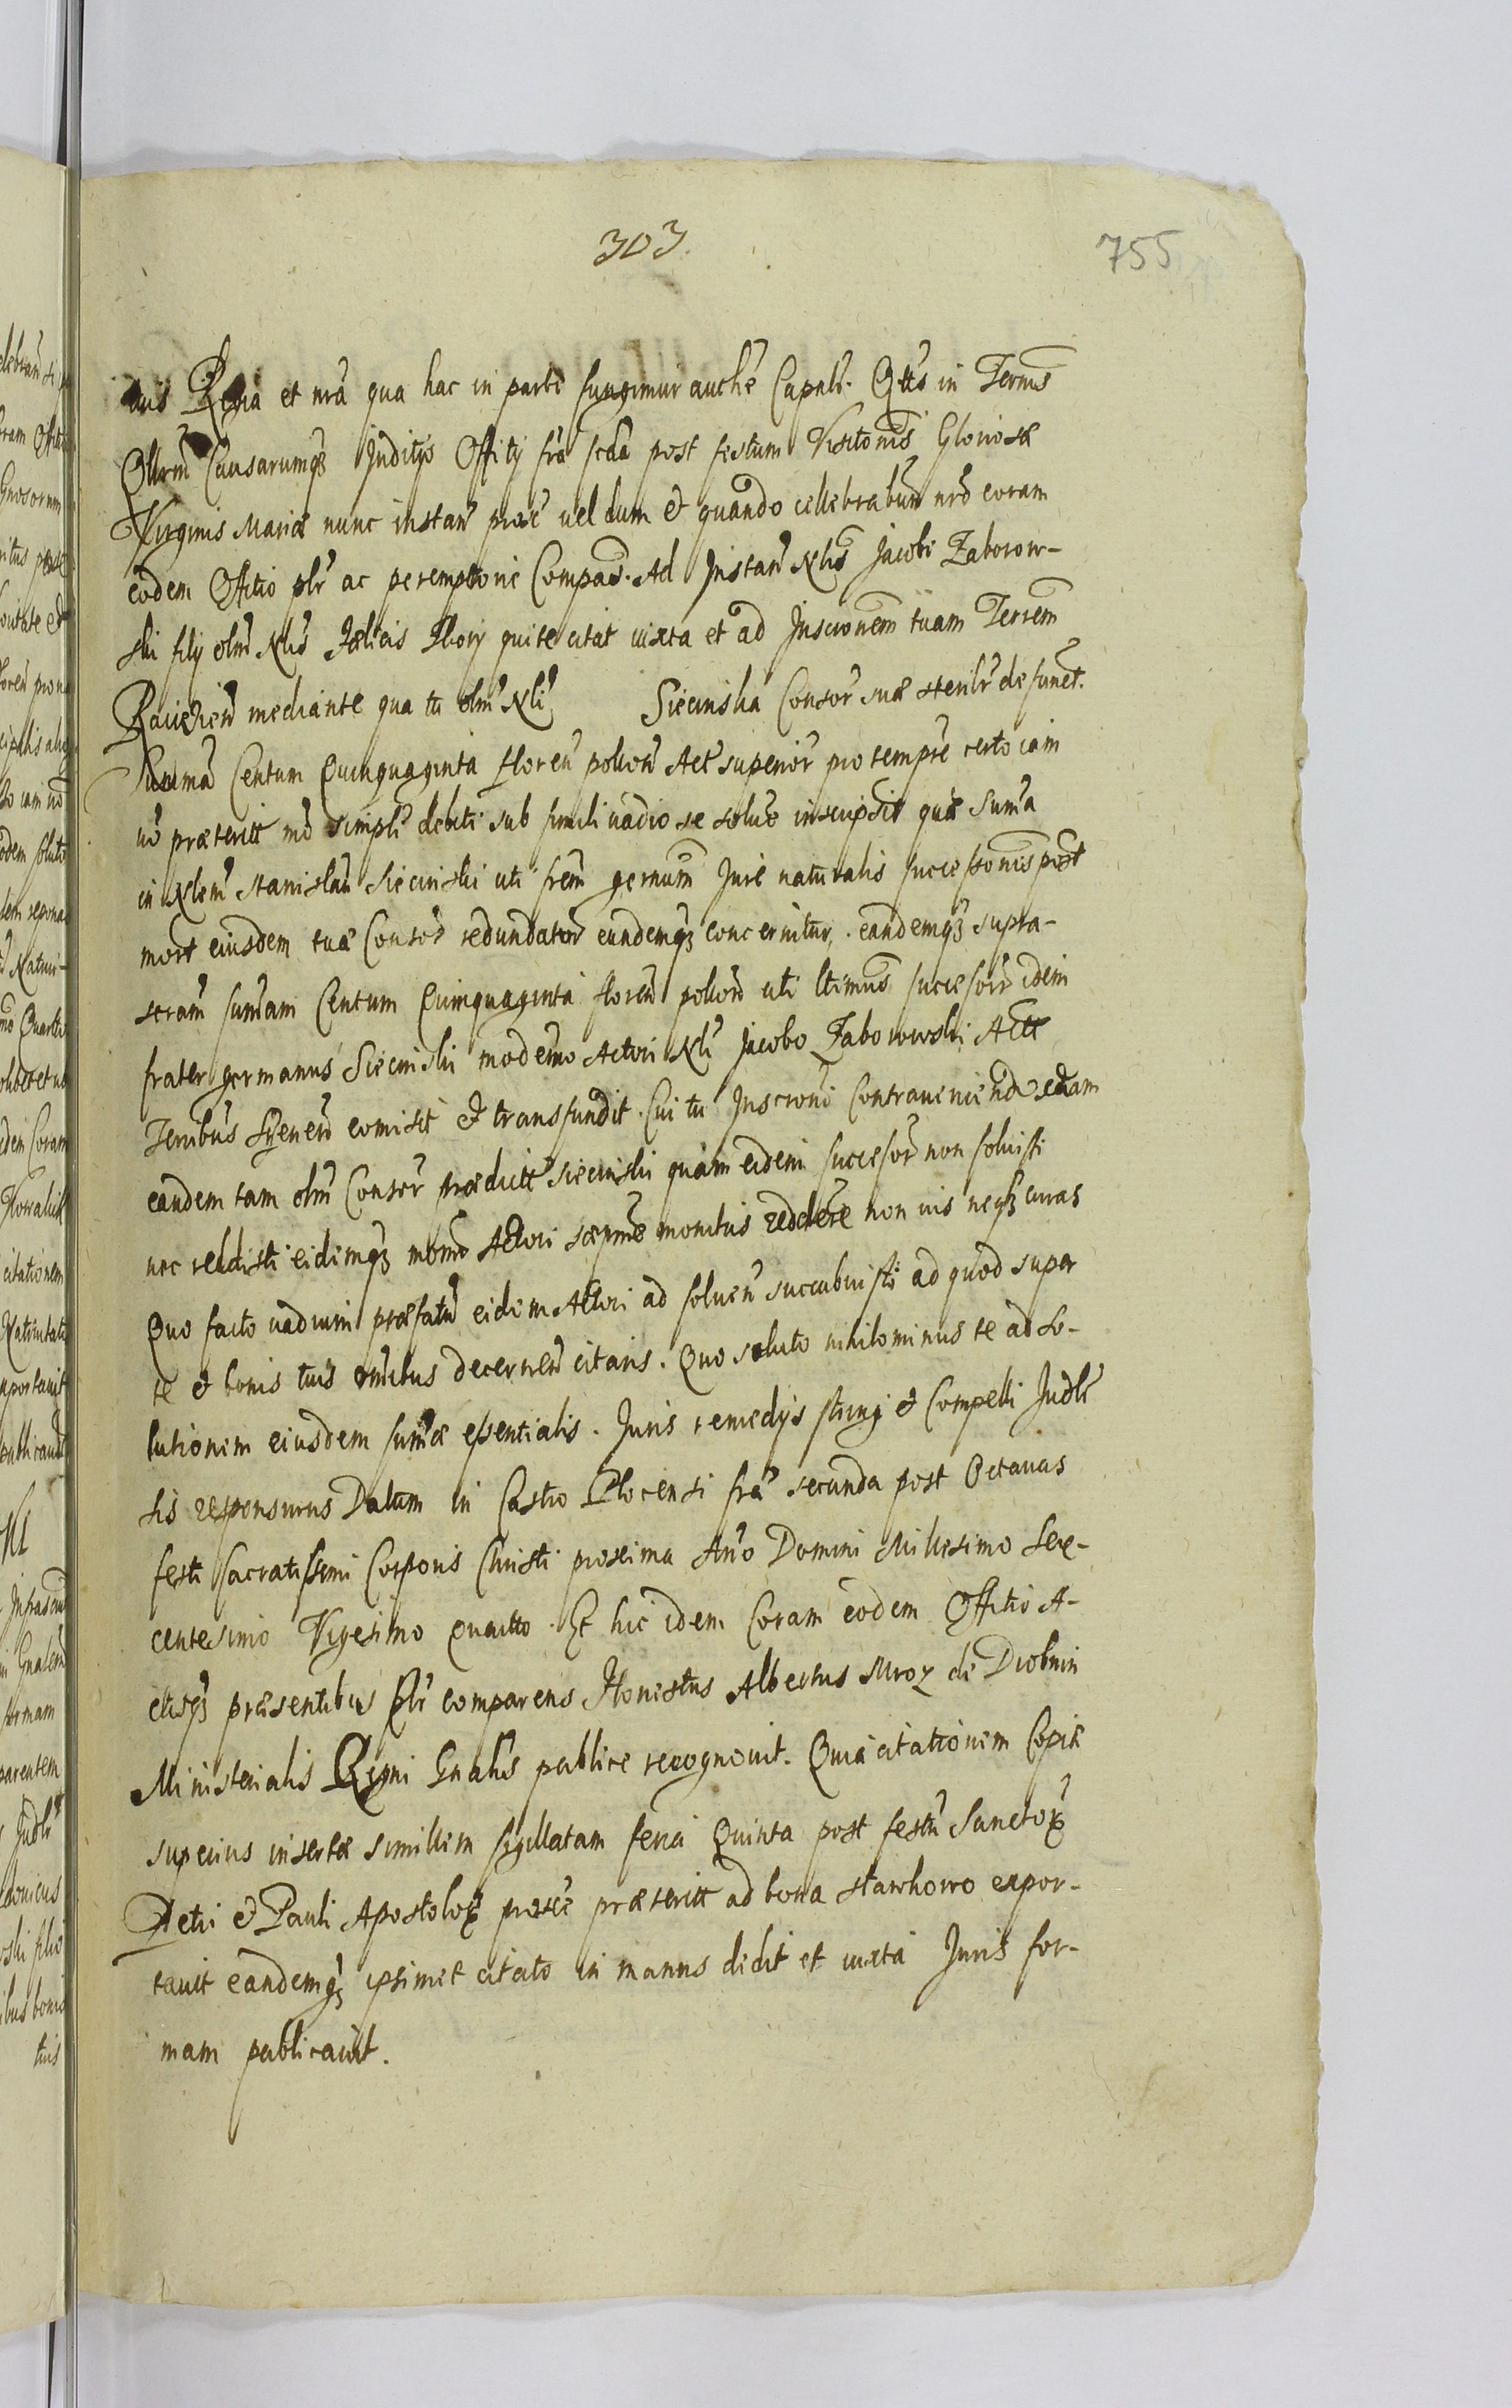 303.
755
tuis Regia et nrã qua hac in parte fungimur authẽ Capnlĩ. Qtts in Termis
Qllrm Causarumq3 Juditijs Offitij fra scda post festum Visitonis Gloriosæ
Virginis Mariæ nunc instan̄ proxe̅ uel dum et quando cellebrabun̄ nrd coram
eodem Offitio plr ac peremptorie Compas. Ad Instan̄ Nlis Jacobi Zaborow-
ski filij olm̄ Nlis Fælicis Ihorij qui te citat iuxta et ad Inscronem tuam Terrem
Racizien̄ mediante qua tu olm̄ Nli Siecinska Consor̄ suæ sterilr̄ defunct.
Summã Centum Quinquaginta floren̄ pollon̄ Act superior̄ pro tempre certo iam
uo præteritt mõ simplĩ debiti sub simili uadio se soluẽ inscripsit quæ Suma
in Nlem Stanislaũ Siecinski uti frem̄ germum̄ Jure naturalis successionis post
mort eiusdem tuæ Consor̄ redundator̄ eundemq3 concernitur, eandemq3 supra-
scram̄ sum̄am Centum Quinquaginta floren̄ pollon̄ uti ltimus successor̄ idem
frater germanus Siecinski moderno Actori Nlĩ Jacobo Zaborowski Actt
Terribus comisit et transfundit. Cui tu Inscronĩ Contraueniendo etiam
eandem tam olm̄ Consor̄ prædictt Siecinski quam eidem successor̄ non soluisti
nec reddisti eidemq3 mõrno Actori sæpme monitus reddere non uis neq3 curas
Quo facto uadium præfatũ eidem Actori ad soluen̄ succubuisti ad quod super
te et bonis tuis om̄ibus decernen̄ citaris. Quo soluto nihilominus te ad so-
lutionem eiusdem sum̄æ essentialis. Juris remedijs stringi et Compelli Judlr̄
sis responsurus Datum in Castro Plocensi fra secunda post Octauas
festi Sacratissimi Corporis Christi proxima Anõ Domini Millesimo Sex-
centesimo Vigesimo Quarto. Et hic idem Coram eodem Offitio A-
ctisq3 præsentibus plr comparens Honestus Albertus Mroz de Drobnin
Ministerialis Regni Gnalis publice recognouit. Quia citationem Copiæ
superius insertæ similem sigillatam feria Quinta post festũ Sanctorũ
Petri et Pauli Apostolorũ proxe̅ præteritt ad bona Starhowo expor-
tauit eandemq3 ipsimet citato in manus dedit et iuxta Juris for-
mam publicauit.